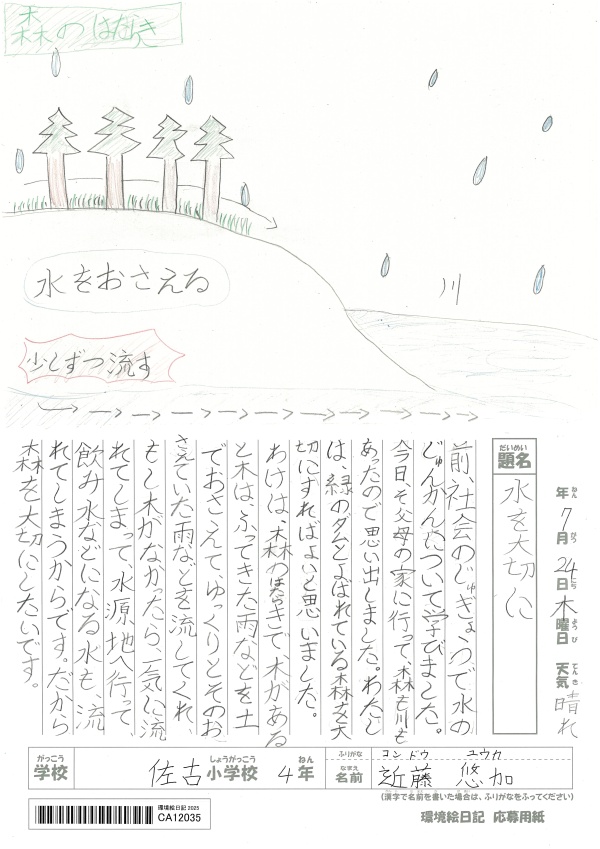 森のはたらき
川
水をおさえる
少しずつ流す
題名 だいめい
水を大切に
年 7月24日 木曜日 天気 晴れ
前、社会のじゅぎょうで水の
じゅんかんについて学びました。
今日、そ父母の家に行って、森も川も
あったので思い出しました。わたし
は、緑のダムとよばれている森を大
切にすればよいと思いました。
わけは、森のはたらきで木がある
と木は、ふってきた雨などを土
でおさえて、ゆっくりとそのお
さえていた雨などを流してくれ、
もし木がなかったら、一気に流
れてしまって、水源地へ行って、
飲み水などになる水も、流
れてしまうからです。だから
森を大切にしたいです。
学校 がっこう 佐古小学校 しょうがっこう 4年 ねん
ふりがな コンドウ ユウカ
名前 なまえ 近藤 悠加
(漢字で名前を書いた場合は、ふりがなをふってください)
環境絵日記 2025
CA12035
環境絵日記 応募用紙